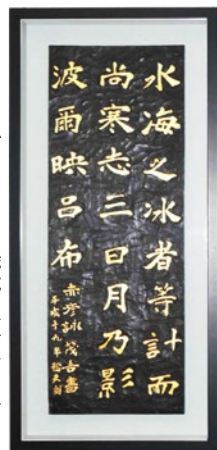 水海之冰者等計而
尚寒志三日月乃影
波爾映呂布
赤彦詠茂吉書
平成十九年